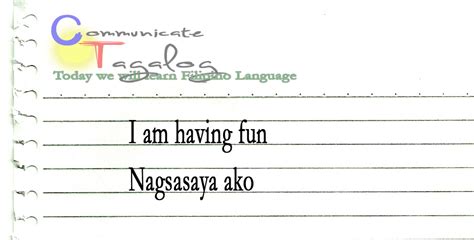 Communicate
Tagalog
Today we will learn Filipino Language
I am having fun
Nagsasaya ako